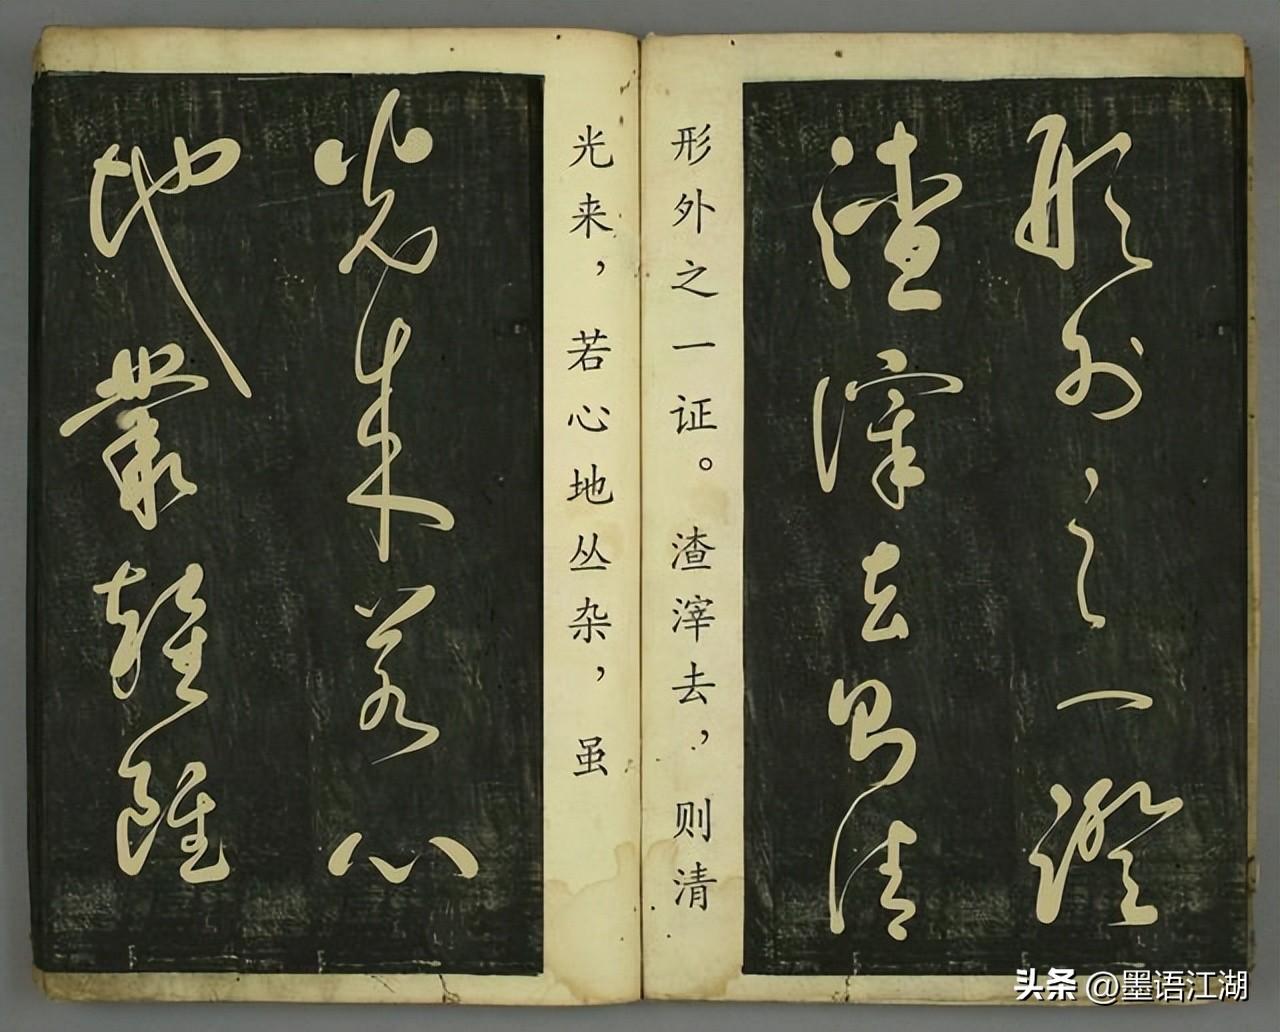 形外之一證
渣滓去則清
形外之一证。渣滓去，则清
光来，若心地丛杂，虽
光来若心
地叢雜雖
头条 @墨语江湖